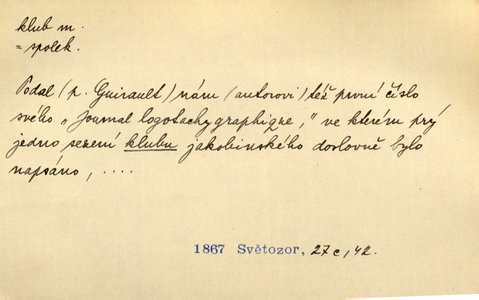 klub m.
= spolek.
Podal (p. Guirault) nám (autorovi) též první číslo
svého „Journal logotachygraphique," ve kterém prý
jedno sezení klubu jakobínského doslovně bylo
napsáno, ....
1867 Světozor, 27c, 42.